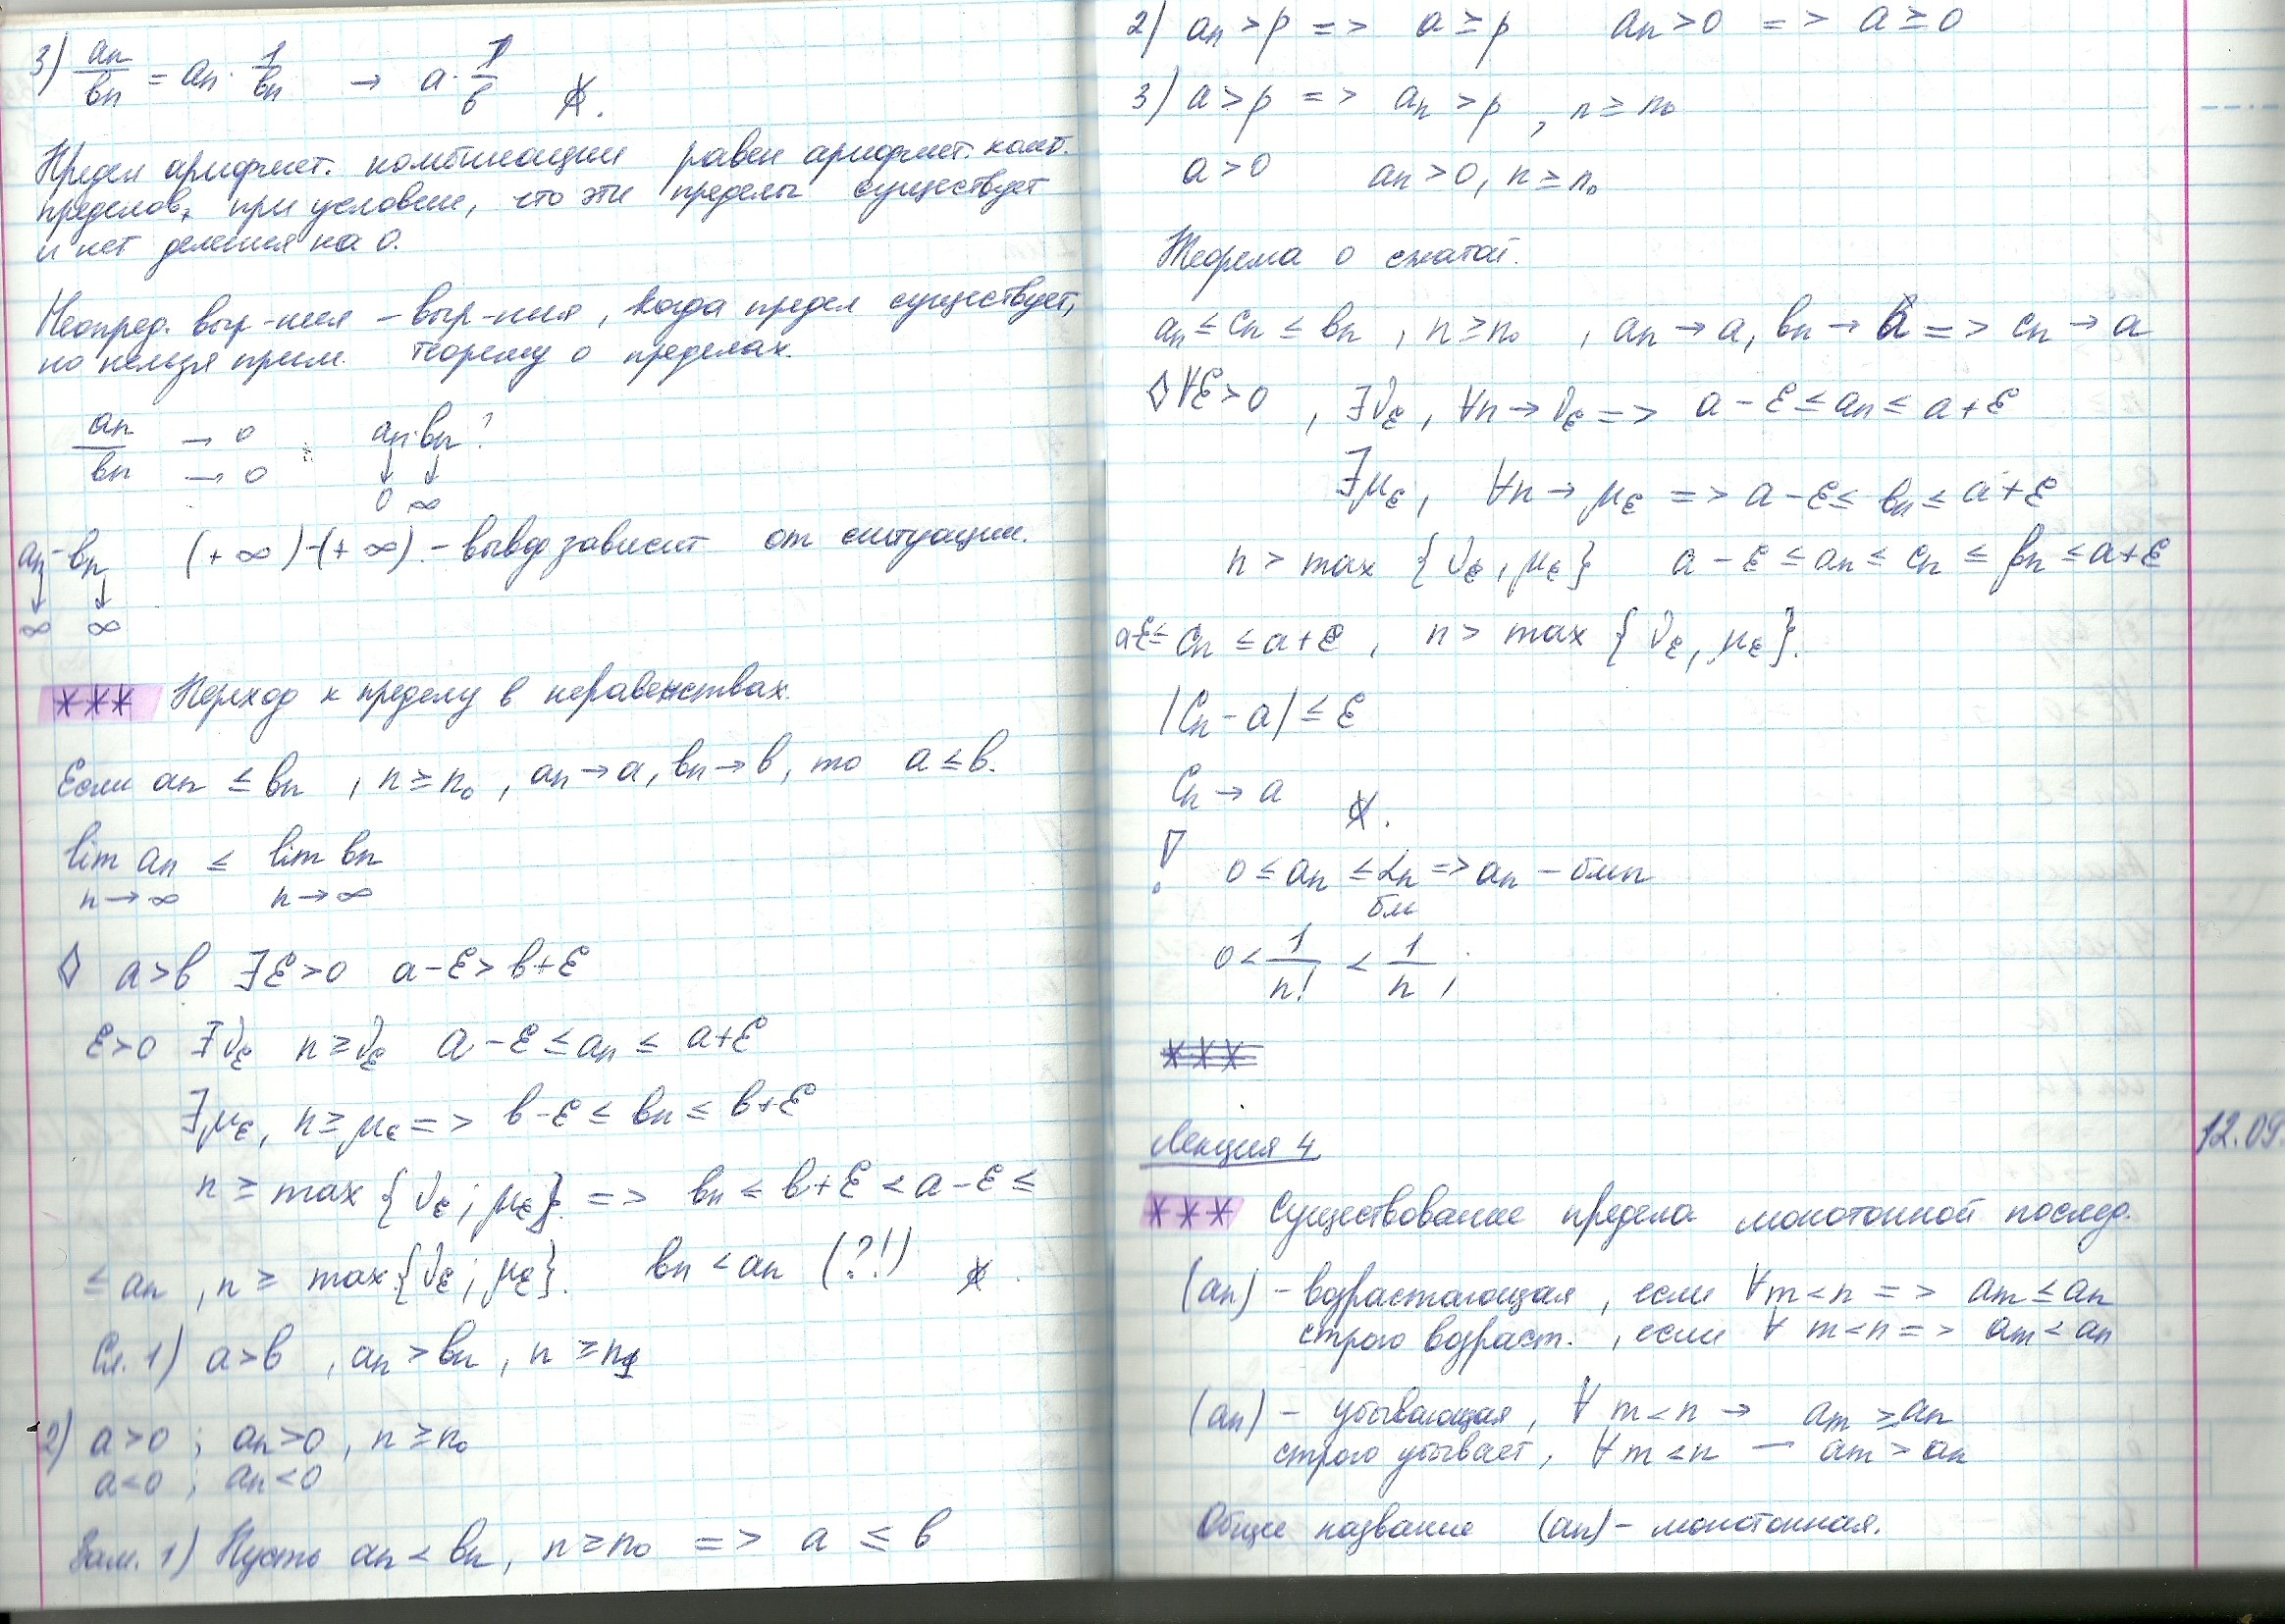 3) an/вn = an · 1/вn → a · 1/в ☆.
Предел арифмет. комбинации равен арифмет. комб.
пределов, при условии, что эти пределы существует
и нет деления на 0.
Неопред. выр-ния – выр-ния, когда предел существует,
но нельзя прим. теорему о пределах.
an/вn → 0 / → 0 ; an · вn ?
↓ ↓
0 ∞
an - вn (+∞)-(+∞) - вывод зависит от ситуации.
↓ ↓
∞ ∞
*** Переход к пределу в неравенствах.
Если an ≤ вn , n ≥ n₀ , an → a, вn → в, то a ≤ в.
lim an ≤ lim вn
n→∞ n→∞
◊ a > в ∃ε>0 a-ε > в+ε
ε>0 ∃νε n ≥ νε a-ε ≤ an ≤ a+ε
∃με, n ≥ με => в-ε ≤ вn ≤ в+ε
n ≥ max {νε ; με}. => вn ≤ в+ε < a-ε ≤
≤ an , n ≥ max{νε ; με}. вn < an (?!) ☆.
Сл. 1) a > в , an > вn , n ≥ n1
2) a > 0 ; an > 0 , n ≥ n₀
a < 0 ; an < 0
Зам. 1) Пусть an < вn, n ≥ n₀ => a ≤ в
2) an > p => a ≥ p an > 0 => a ≥ 0
3) a > p => an > p , n ≥ n₀
a > 0 an > 0, n ≥ n₀
Теорема о сжатой.
an ≤ cn ≤ вn , n ≥ n₀ , an → a, вn → a => cn → a
◊ ∀ε>0 , ∃νε , ∀n → νε => a-ε ≤ an ≤ a+ε
∃με , ∀n → με => a-ε ≤ вn ≤ a+ε
n > max {νε , με} a-ε ≤ an ≤ cn ≤ вn ≤ a+ε
a-ε ≤ cn ≤ a+ε , n > max {νε , με}.
|cn - a| ≤ ε
cn → a ☆.
! 0 ≤ an ≤ αn => an – бмп
бм
0 < 1/n! < 1/n ,
***
Лекция 4
12.09
*** Существование предела монотонной послед.
(an) – возрастающая, если ∀m<n => am ≤ an
строго возраст. , если ∀ m<n => am < an
(an) – убывающая, ∀ m<n → am ≥ an
строго убывает, ∀ m<n — am > an
Общее название (an) – монотонная.